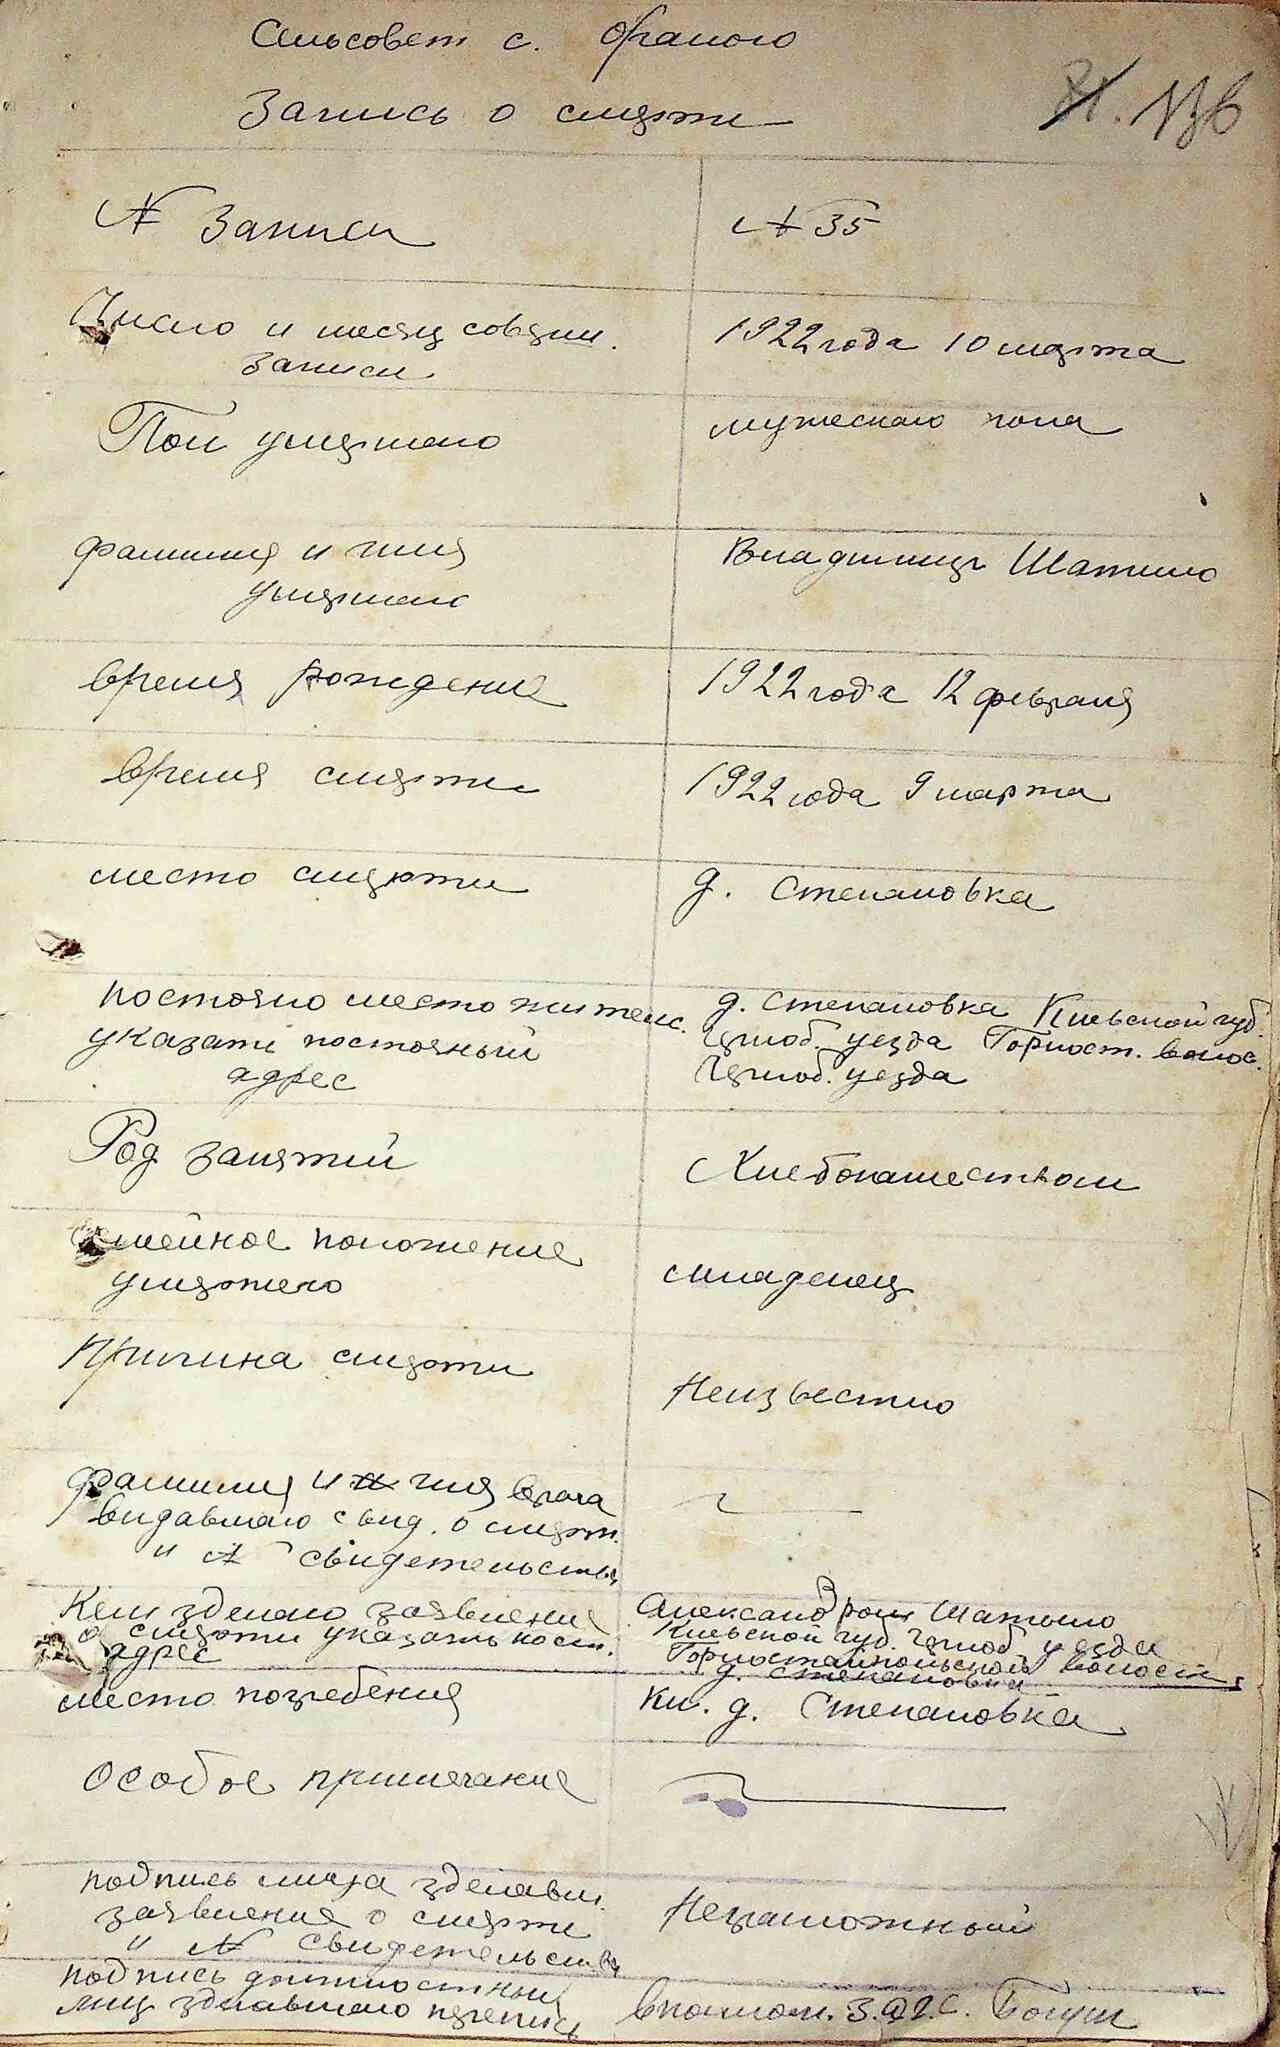 Сельсовет с. Ораного
Запись о смерти
136
№ Записи
№ 35
Число и месяц соверш.
записи
1922 года 10 марта
Пол умершего
мужескаго пола
фамилия и имя
умершаго
Владимир Шатило
время рождение
1922 года 12 февраля
время смерти
1922 года 9 марта
место смерти
д. Степановка
постояно место жителс.
указать постояный
адрес
д. Степановка Киевской губ.
Черноб. уезда Горност. волос.
Черноб. уезда
Род занятий
Хлебопашеством
Семейное положение
умершего
младенец
Причина смерти
Неизвестно
фамилия и имя врача
видавшаго свид. о смерт.
и № свидетельства
Кем зделано заявление
о смерти указать пост.
адрес
Александр Шатыло
Киевской губ. Черноб. уезда
Горностайпольской волости
д. Степановка
место погребения
кл. д. Степановка
Особое примечание
подпись лица зделавш.
заявление о смерти
и № свидетельства
Неграмотный
подпись должностных
лиц зделавшаго
З.А.Г.С.